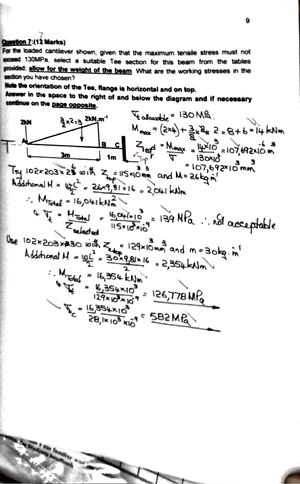 9
Question 7:(12 Marks)
For the loaded cantilever shown, given that the maximum tensile stress must not
exceed 130MPa, select a suitable Tee section for this beam from the tables
provided; allow for the weight of the beam. What are the working stresses in the
section you have chosen?
Note the orientation of the Tee, flange is horizontal and on top.
Answer in the space to the right of and below the diagram and if necessary
continue on the page opposite.
2kN
2kN.m⁻¹
A
B
C
3m
1m
Top
allowable = 130 MPa
M max = (2×4) + ... × 2 = 8+6 = 14 kNm
Z reqd = M max = 14×10³ = 107,692×10⁻⁶ m³
130×10⁶
= 107,692×10³ mm³
Try 102×203×26 with Z top = 115×10³ mm³ and M = 26kg
Additional M = = 26×9,81×16 = 2,041 kNm
2
∴ M Total = 16,041 kNm
= M Total = 16,041×10³ = 139 MPa ∴ Not acceptable
Z selected 115×10³×10⁻⁹
Use 102×203×30 with Z top = 129×10³ mm³ and m = 30kg.m⁻¹
Additional M = = 30×9,81×16 = 2,354 kNm
2
∴ M Total = 16,354 kNm
= 16,354×10³ = 126,778 MPa
129×10³×10⁻⁹
= 16,354×10³ = 582 MPa
28,1×10³×10⁻⁹